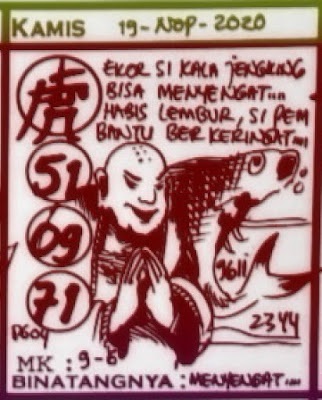 KAMIS 19-NOP-2020
EKOR SI KALA JENGKING
BISA MENYENGAT....
HABIS LEMBUR, SI PEM
BANTU BERKERINGAT...
虎
51
09
71
9611
2344
PG09
MK : 9-6
BINATANGNYA : MENYENGAT....